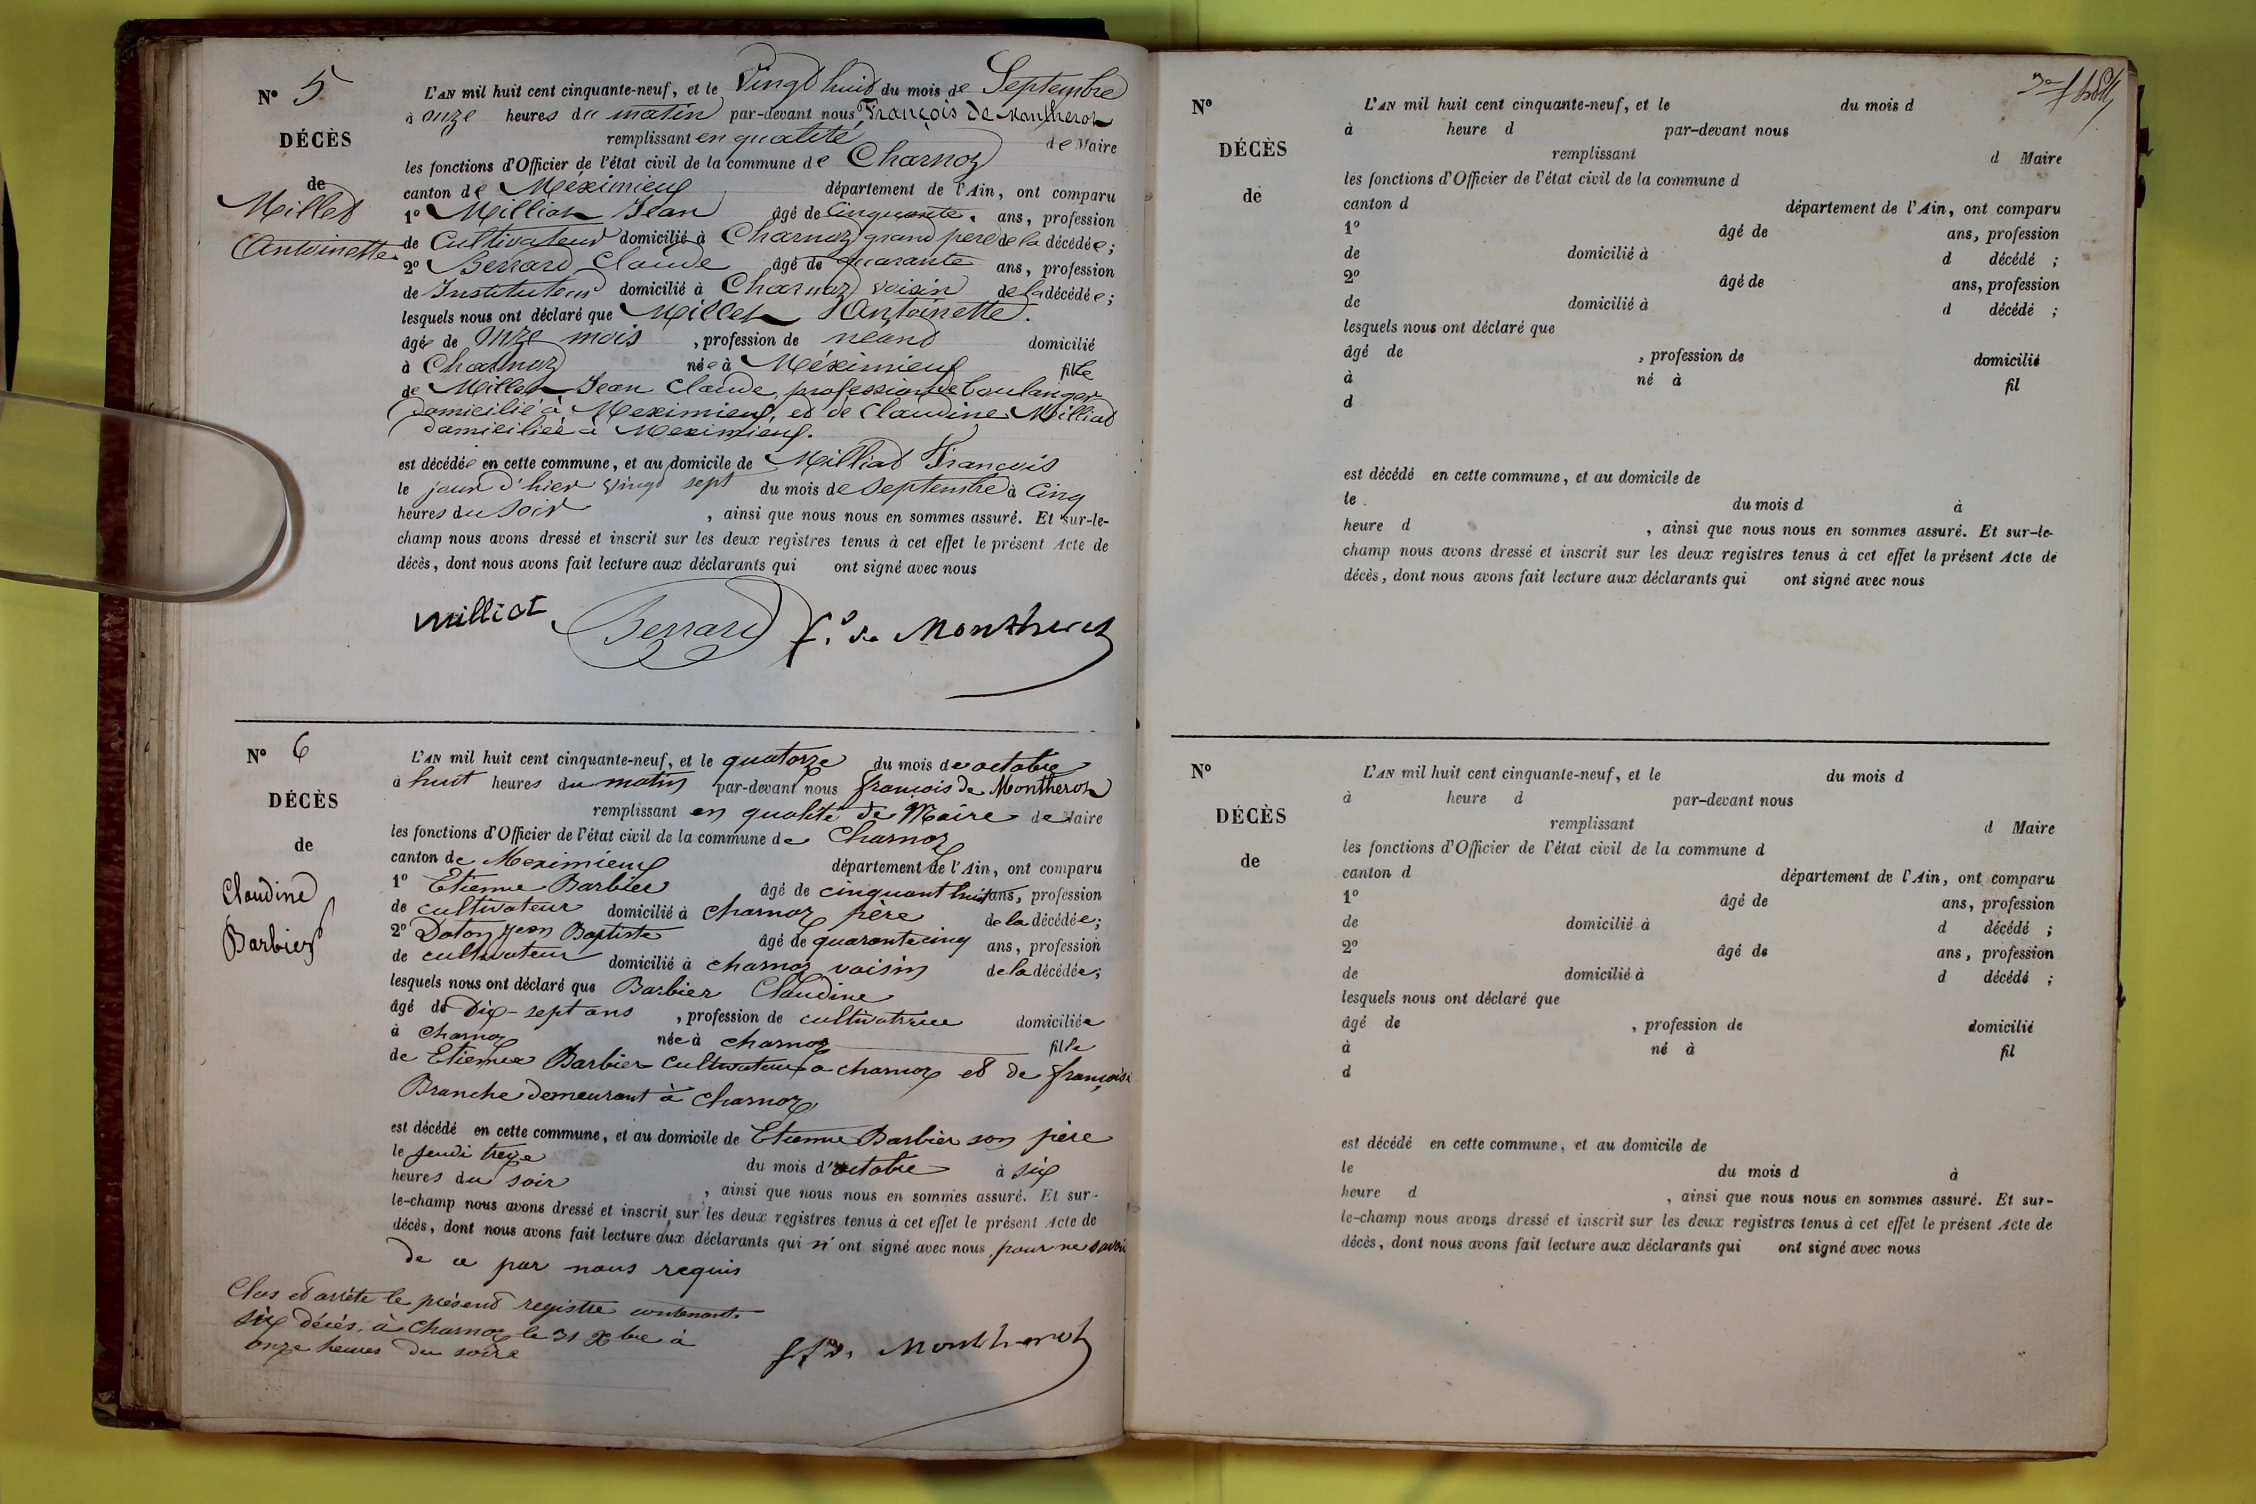 N° 5
DÉCÈS
de
Millet
Antoinette
L'AN mil huit cent cinquante-neuf, et le Vingt huit du mois de Septembre
à onze heures du matin par-devant nous François de Montherot
remplissant en qualité de Maire
les fonctions d'Officier de l'état civil de la commune de Charnoz
canton de Meximieux département de l'Ain, ont comparu
1° Milliat Jean âgé de Cinquante. ans, profession
de Cultivateur domicilié à Charnoz grand père de la décédée;
2° Berrard Claude âgé de quarante ans, profession
de Instituteur domicilié à Charnoz voisin de la décédée;
lesquels nous ont déclaré que Millet Antoinette.
âgée de onze mois , profession de néant domicilié
à Charnoz née à Méximieux fille
de Millet Jean Claude, profession de boulanger
domicilié à Meximieux, et de Claudine Milliat
domiciliée à Meximieux.
est décédée en cette commune, et au domicile de Milliat François
le jour d'hier vingt sept du mois de Septembre à Cinq
heures du Soir , ainsi que nous nous en sommes assuré. Et sur-le-
champ nous avons dressé et inscrit sur les deux registres tenus à cet effet le présent Acte de
décès, dont nous avons fait lecture aux déclarants qui ont signé avec nous
Milliat Berrard f. de Montherot
N° 6
DÉCÈS
de
Claudine
Barbier
L'AN mil huit cent cinquante-neuf, et le quatorze du mois de octobre
à huit heures du matin par-devant nous françois de Montherot
remplissant en qualité de Maire de Maire
les fonctions d'Officier de l'état civil de la commune de Charnoz
canton de Meximieux département de l'Ain, ont comparu
1° Etienne Barbier âgé de cinquant huit ans, profession
de cultivateur domicilié à charnoz père de la décédée;
2° Jean Baptiste âgé de quarante cinq ans, profession
de cultivateur domicilié à charnoz voisin de la décédée;
lesquels nous ont déclaré que Barbier Claudine
âgé de Dix-sept ans , profession de cultivatrice domiciliée
à Charnoz née à charnoz fille
de Etienne Barbier cultivateur a charnoz et de françoise
Branche demeurant à Charnoz
est décédé en cette commune, et au domicile de Etienne Barbier son père
le jeudi treize du mois d'octobre à six
heures du soir , ainsi que nous nous en sommes assuré. Et sur-
le-champ nous avons dressé et inscrit sur les deux registres tenus à cet effet le présent Acte de
décès, dont nous avons fait lecture aux déclarants qui n'ont signé avec nous, pour ne savoir
de ce par nous requis
Clos et arrête le présent registre contenant
six décès, à Charnoz le 31 Xbre à
onze heures du soire
Montherot
N°
DÉCÈS
de
L'AN mil huit cent cinquante-neuf, et le du mois d
à heure d par-devant nous
remplissant d Maire
les fonctions d'Officier de l'état civil de la commune d
canton d département de l'Ain, ont comparu
1° âgé de ans, profession
de domicilié à d décédé ;
2° âgé de ans, profession
de domicilié à d décédé ;
lesquels nous ont déclaré que
âgé de , profession de domicilié
à né à fil
d
est décédé en cette commune, et au domicile de
le du mois d à
heure d , ainsi que nous nous en sommes assuré. Et sur-le-
champ nous avons dressé et inscrit sur les deux registres tenus à cet effet le présent Acte de
décès, dont nous avons fait lecture aux déclarants qui ont signé avec nous
N°
DÉCÈS
de
L'AN mil huit cent cinquante-neuf, et le du mois d
à heure d par-devant nous
remplissant d Maire
les fonctions d'Officier de l'état civil de la commune d
canton d département de l'Ain, ont comparu
1° âgé de ans, profession
de domicilié à d décédé ;
2° âgé de ans, profession
de domicilié à d décédé ;
lesquels nous ont déclaré que
âgé de , profession de domicilié
à né à fil
d
est décédé en cette commune, et au domicile de
le du mois d à
heure d , ainsi que nous nous en sommes assuré. Et sur-
le-champ nous avons dressé et inscrit sur les deux registres tenus à cet effet le présent Acte de
décès, dont nous avons fait lecture aux déclarants qui ont signé avec nous